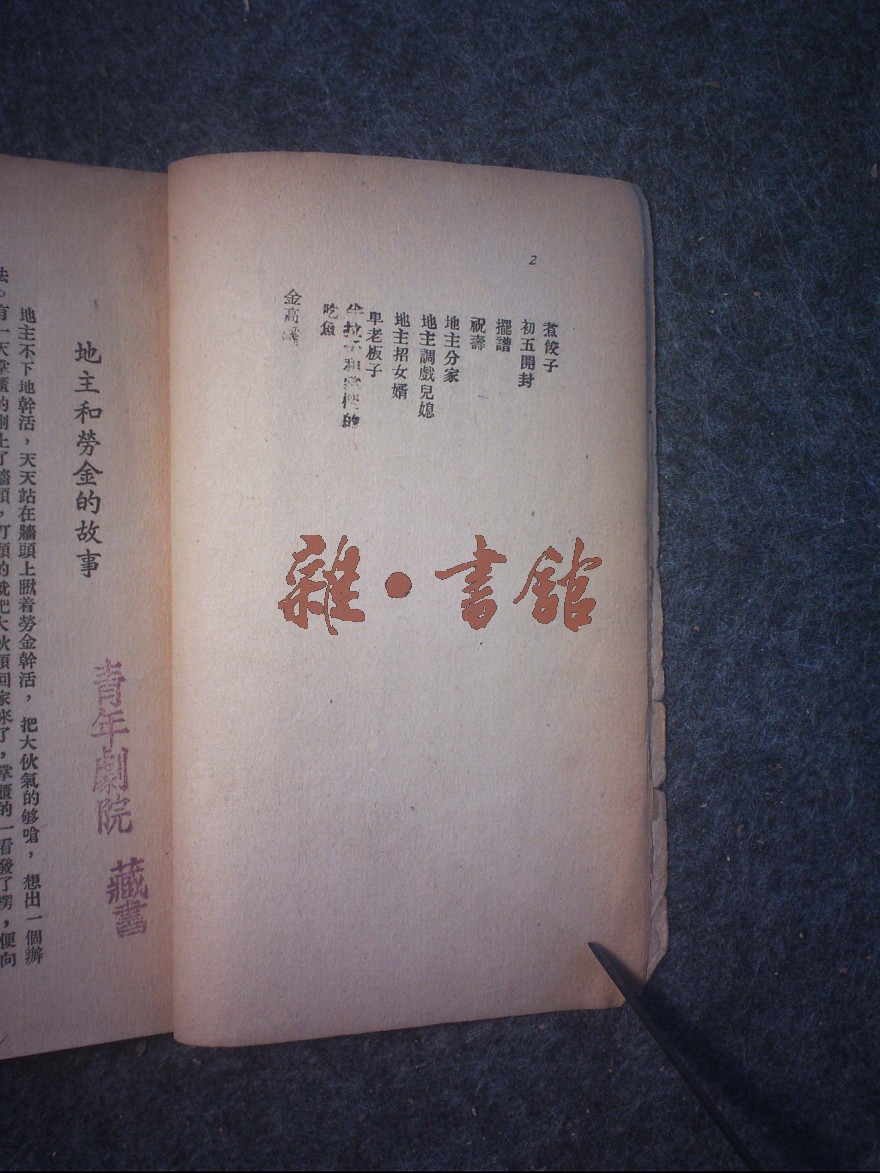 2
煮餃子
初五開封
擺譜
祝壽
地主分家
地主調戲兒媳
地主招女婿
卑老板子
和
的
吃魚
金高
雜•書館
地主和勞金的故事
地主不下地幹活，天天站在牆頭上瞅着勞金幹活，把大伙氣的够嗆，想出一個辦
法。有一天掌櫃的剛上了牆頭，打頭的就把大伙領回家來了，掌櫃的一看發了愣，便向
青年劇院 藏書